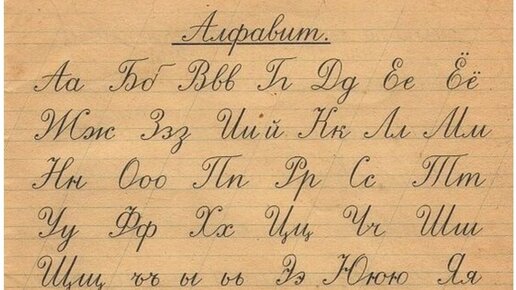 Алфавит.
Аа Бб Ввв Гг Дд Ее Ёё
Жж Ззз Иий Кк Лл Мм
Нн Ооо Пп Рр Сс Тт
Уу Фф Хх Цц Чч Шш
Щщ ъъ ы ьь Ээ Ююю Яя